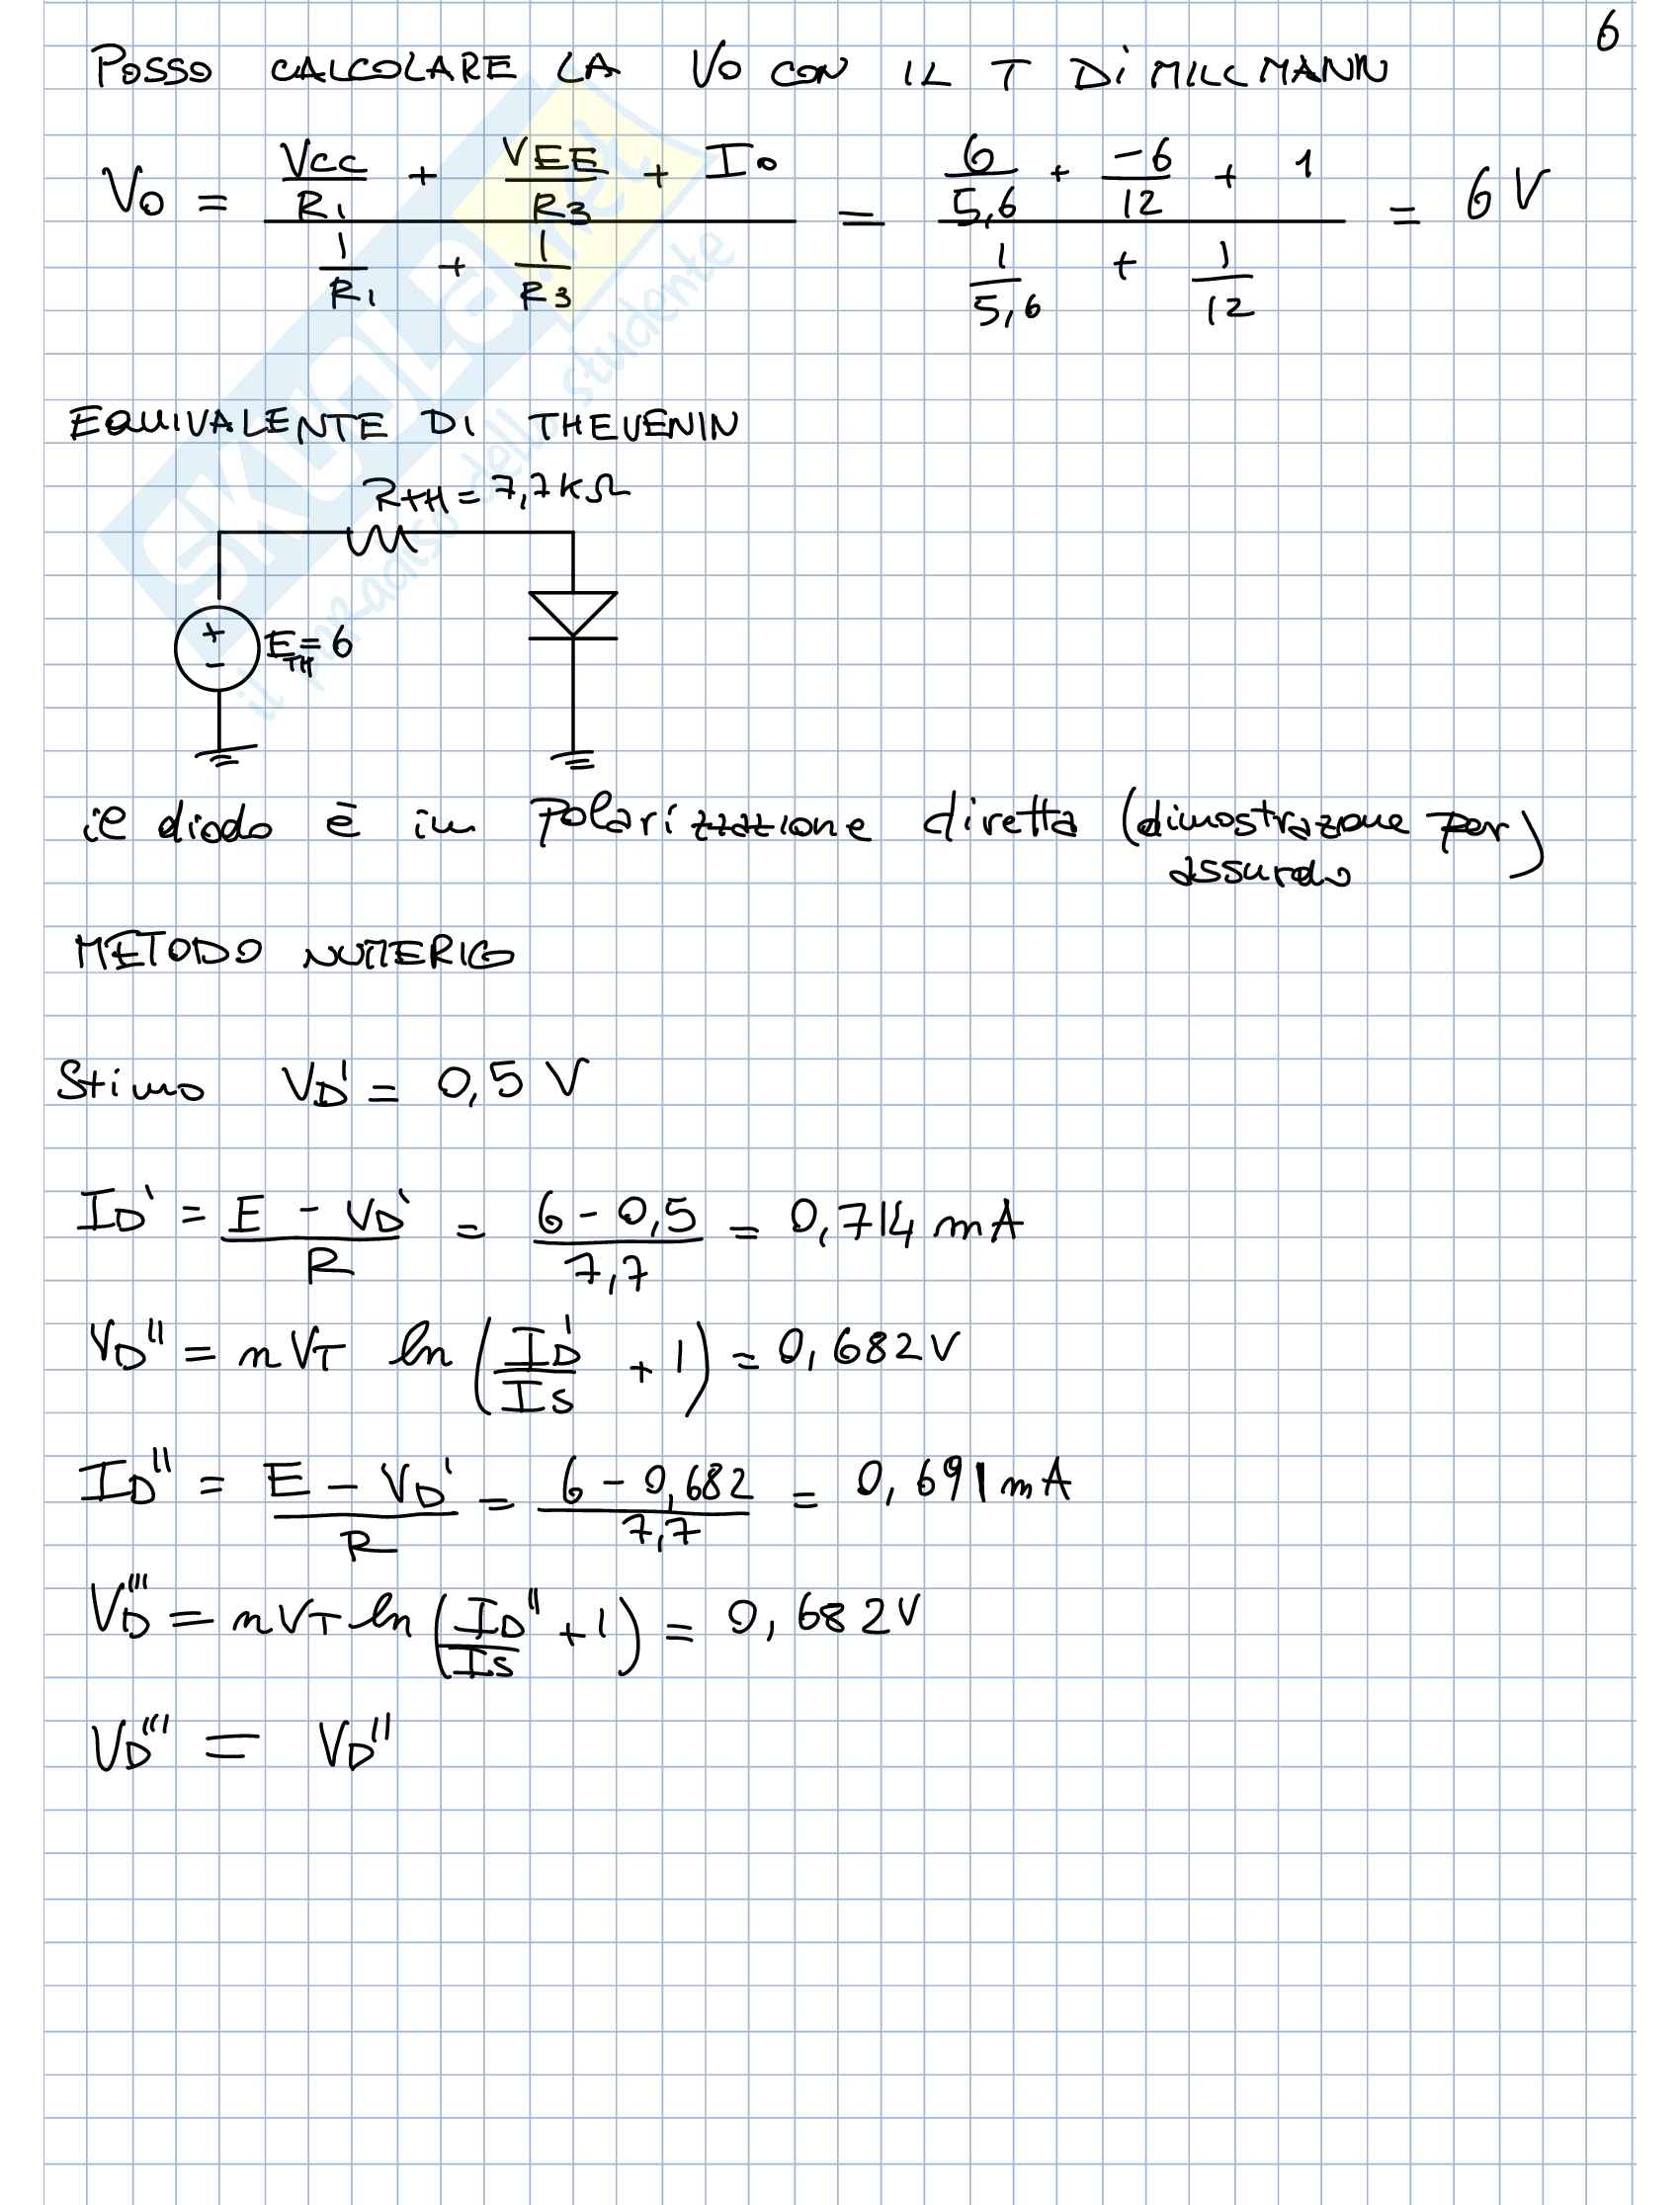 6
POSSO CALCOLARE LA Vo CON IL T DI MILLMANN
Vo = (VCC/R1 + VEE/R3 + Io) / (1/R1 + 1/R3) = (6/5,6 + -6/12 + 1) / (1/5,6 + 1/12) = 6 V
EQUIVALENTE DI THEVENIN
RTH = 7,7 KΩ
+
-
ETH = 6
il diodo è in Polarizzazione diretta (dimostrazione per assurdo)
METODO NUMERICO
Stimo VD' = 0,5 V
ID' = (E - VD') / R = (6 - 0,5) / 7,7 = 0,714 mA
VD'' = nVT ln (ID'/IS + 1) = 0,682 V
ID'' = (E - VD') / R = (6 - 0,682) / 7,7 = 0,691 mA
VD''' = nVT ln (ID''/IS + 1) = 0,682 V
VD''' = VD''
SKUOLA.net
il paradiso dello studente